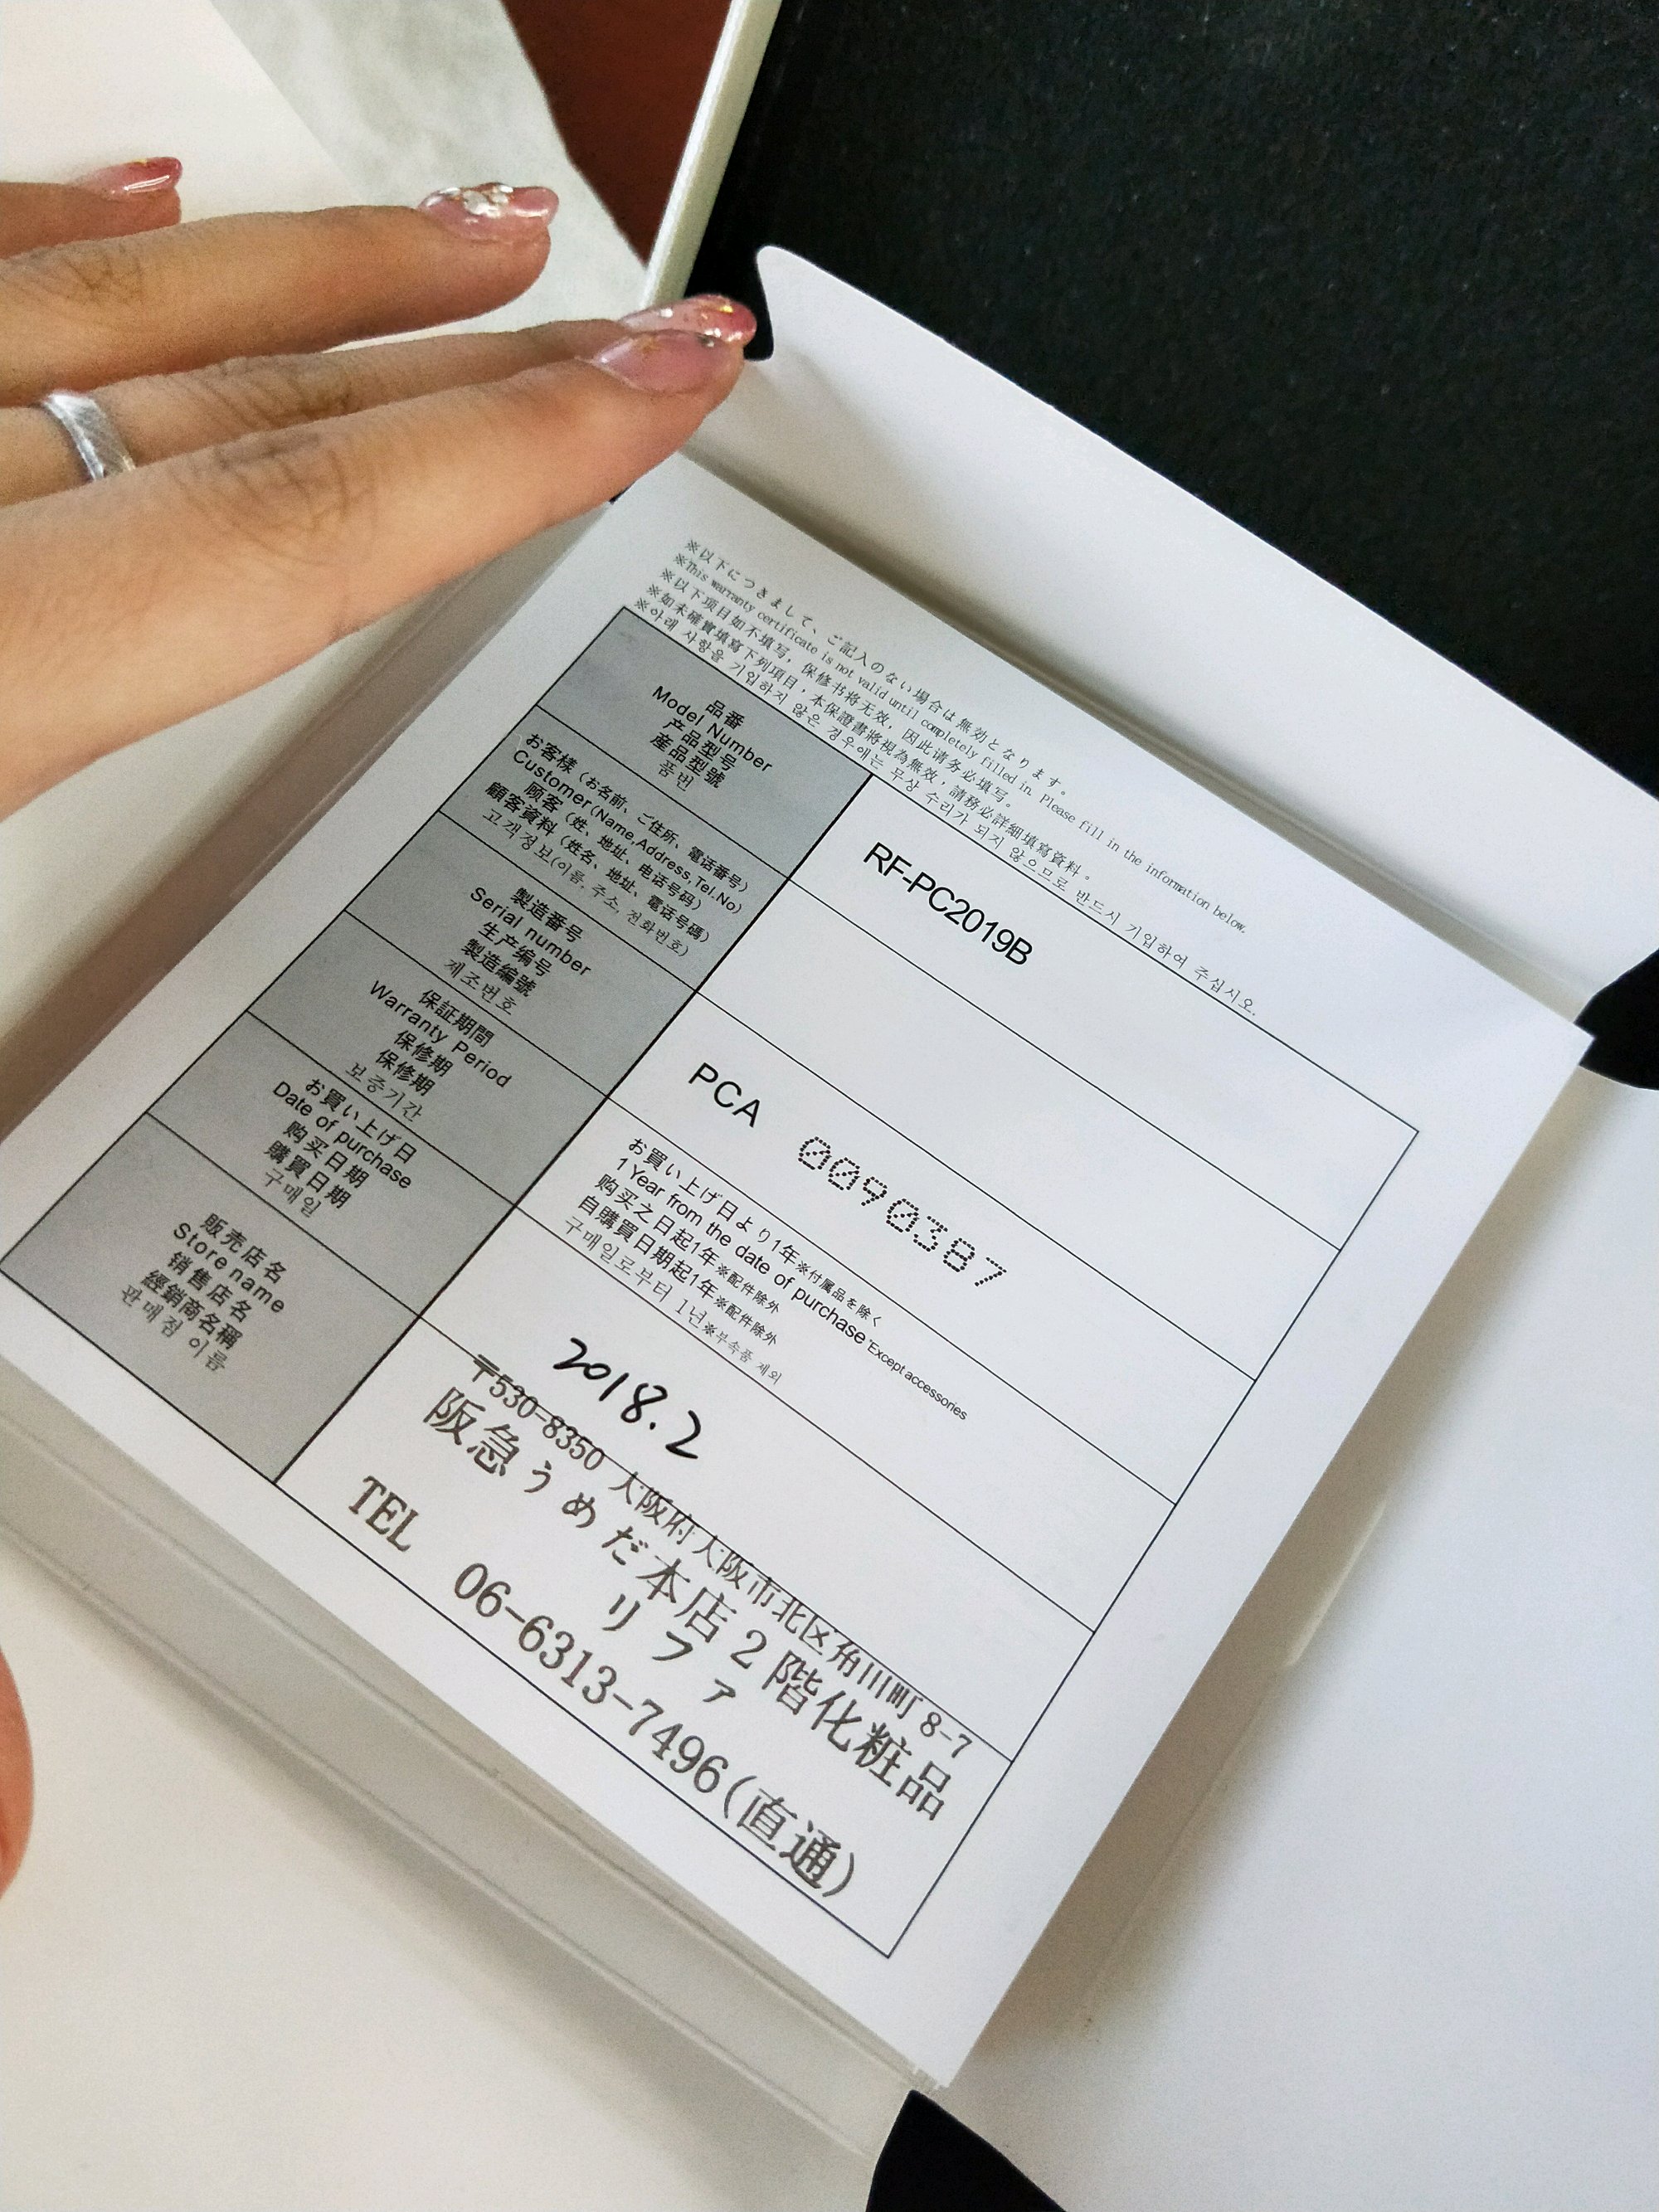 ※以下につきまして、ご記入のない場合は無効となります。
※This warranty certificate is not valid until completely filled in. Please fill in the information below.
※以下项目如不填写，保修书将无效，因此请务必填写。
※如未確實填寫下列項目，本保證書將視為無效，請務必詳細填寫資料。
※아래 사항을 기입하지 않은 경우에는 무상 수리가 되지 않으므로 반드시 기입하여 주십시오.
品番
Model Number
产品型号
産品型號
품번
RF-PC2019B
お客様（お名前、ご住所、電話番号）
Customer(Name,Address,Tel.No)
顾客（姓、地址、电话号码）
顧客資料（姓名、地址、電話号碼）
고객정보(이름, 주소, 전화번호)
製造番号
Serial number
生产编号
製造編號
제조번호
PCA 0090387
保証期間
Warranty Period
保修期
保修期
보증기간
お買い上げ日より1年※付属品を除く
1 Year from the date of purchase *Except accessories
购买之日起1年※配件除外
自購買日期起1年※配件除外
구매일로부터 1년※부속품 제외
お買い上げ日
Date of purchase
购买日期
購買日期
구매일
2018.2
販売店名
Store name
销售店名
經銷商名稱
판매점 이름
〒530-8350 大阪府大阪市北区角田町 8-7
阪急うめだ本店 2 階化粧品
リファ
TEL 06-6313-7496(直通)